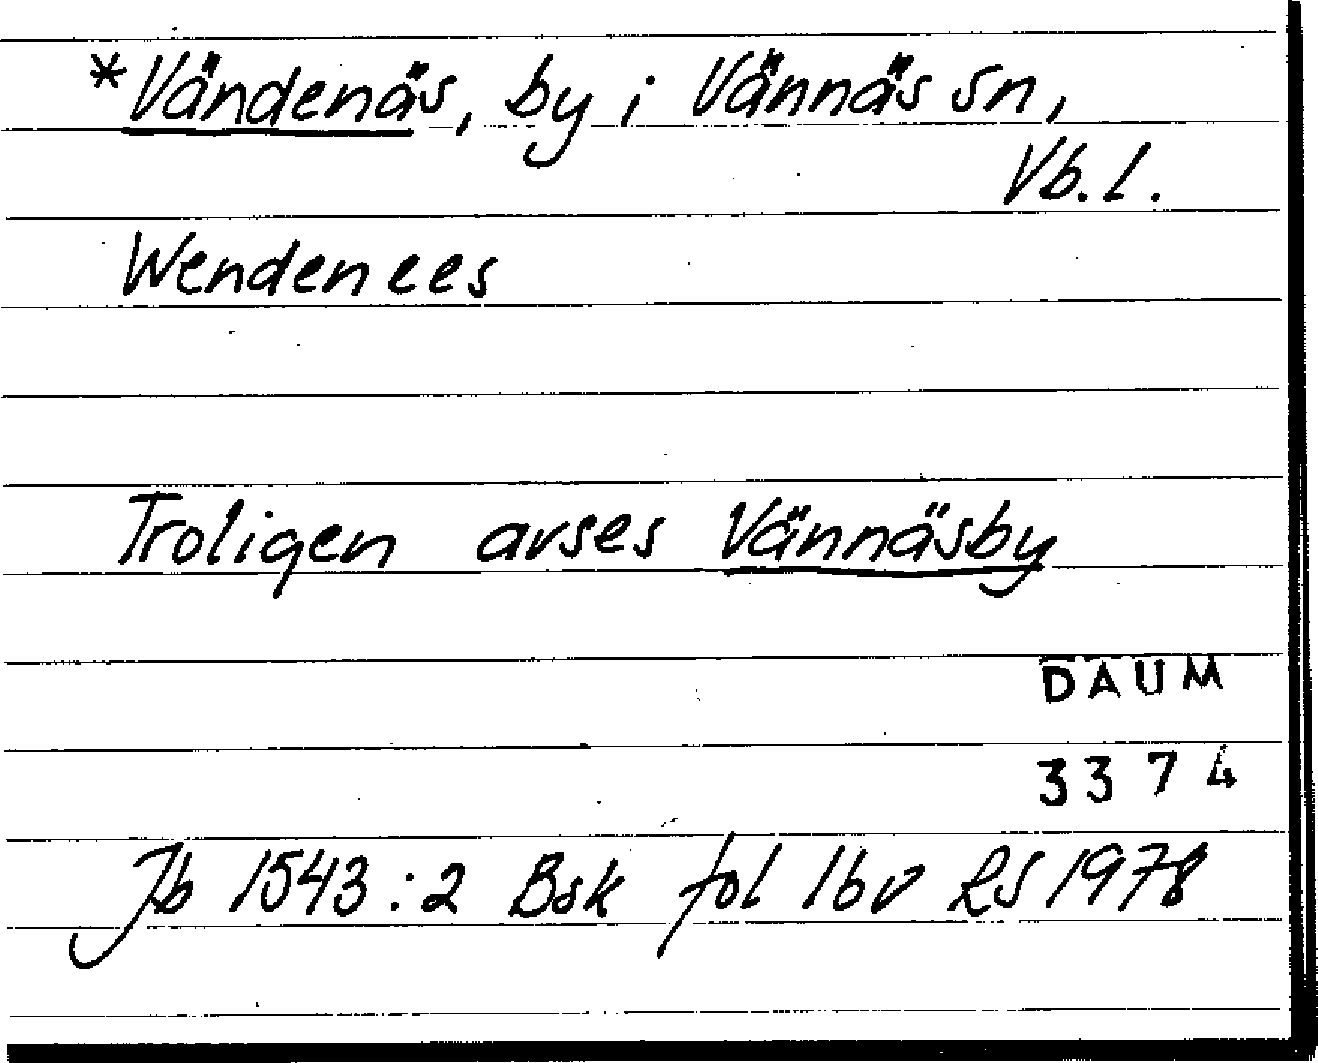 *Vändenäs, by i Vännäs sn,
Vb.l.
Wendenees
Troligen avses Vännäsby
DAUM
3374
Jb 1543:2 Bsk fol 16v RS 1978